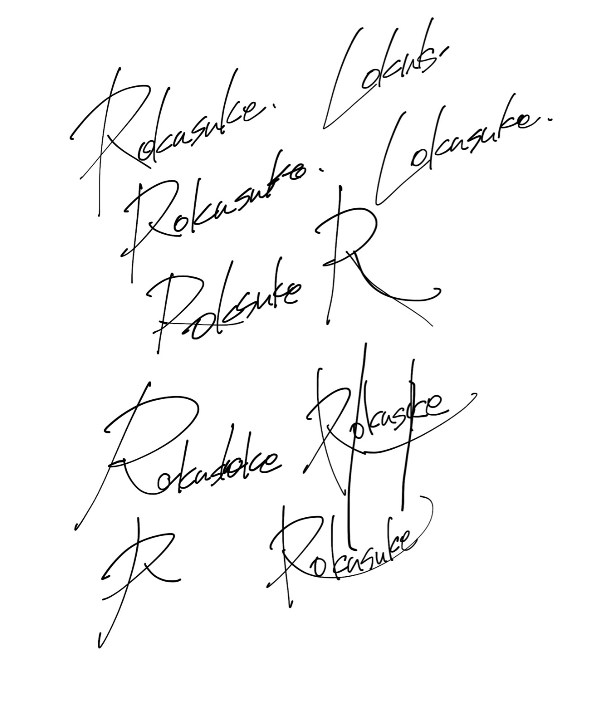 Rokasuke.
Lokus.
Rokasuke.
Lokasuke.
Rokasuke
R
Rokasuke
Rokasuke
R
Rokasuke